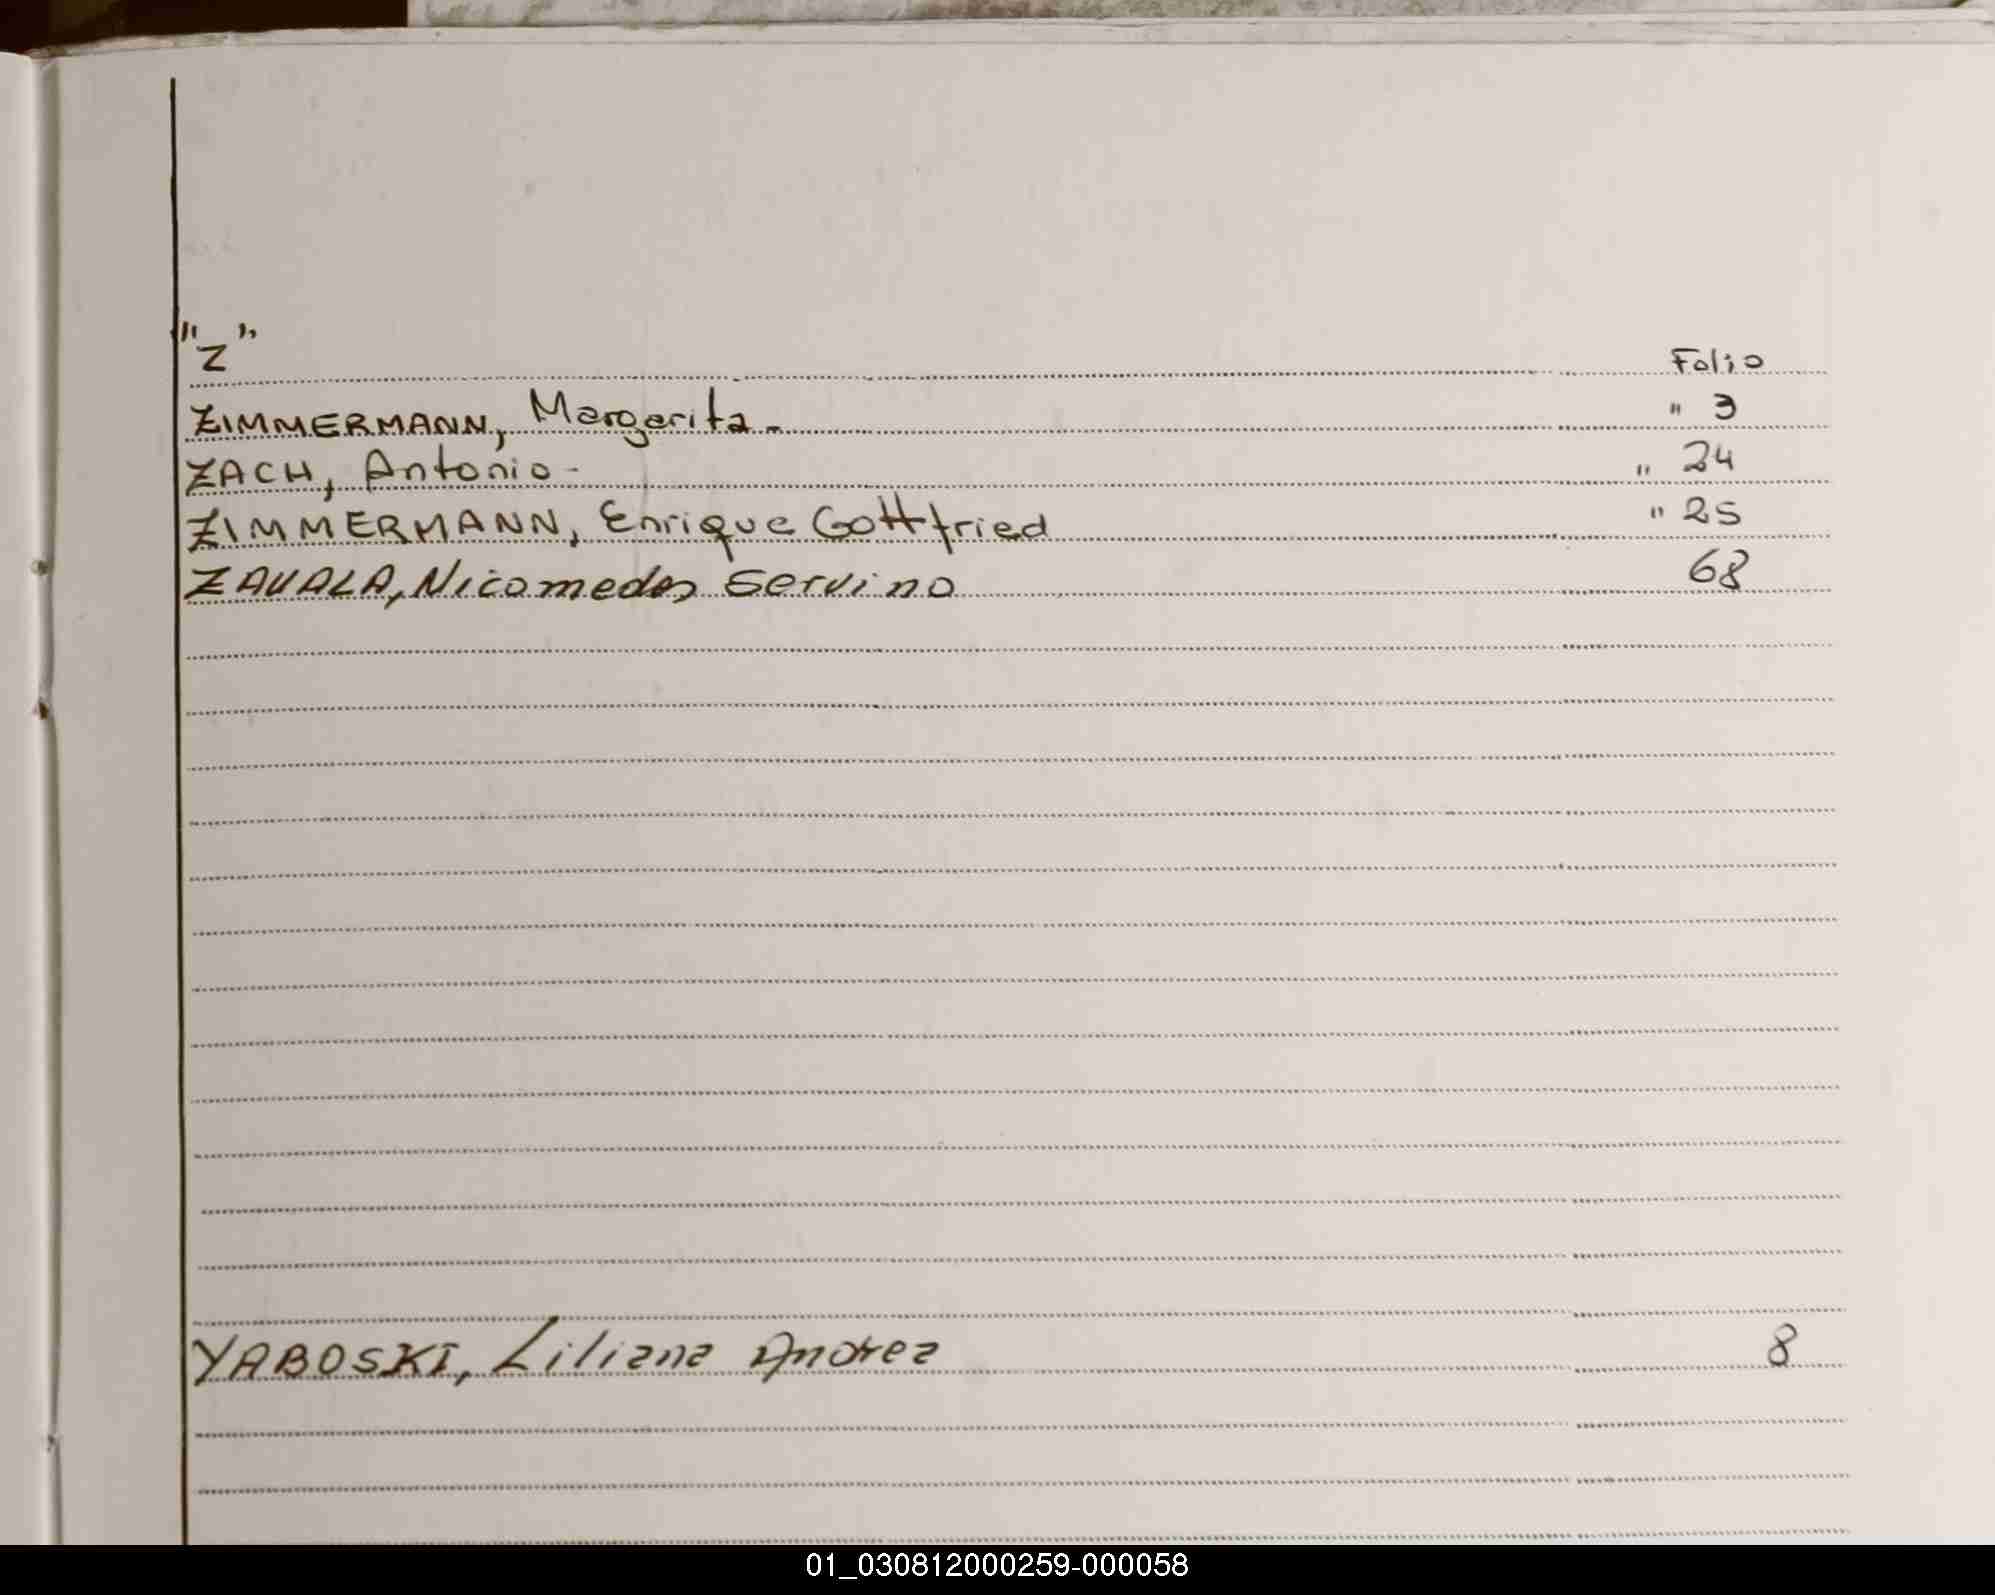 "Z"
Folio
ZIMMERMANN, Margarita - " 3
ZACH, Antonio - " 24
ZIMMERMANN, Enrique Gottfried " 25
ZAVALA, Nicomedes Servino 68
YABOSKI, Liliana Andrea 8
01_030812000259-000058